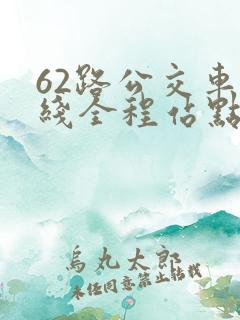 62路公交車
綫全程佔點
烏丸太郎
未经同意禁止转载